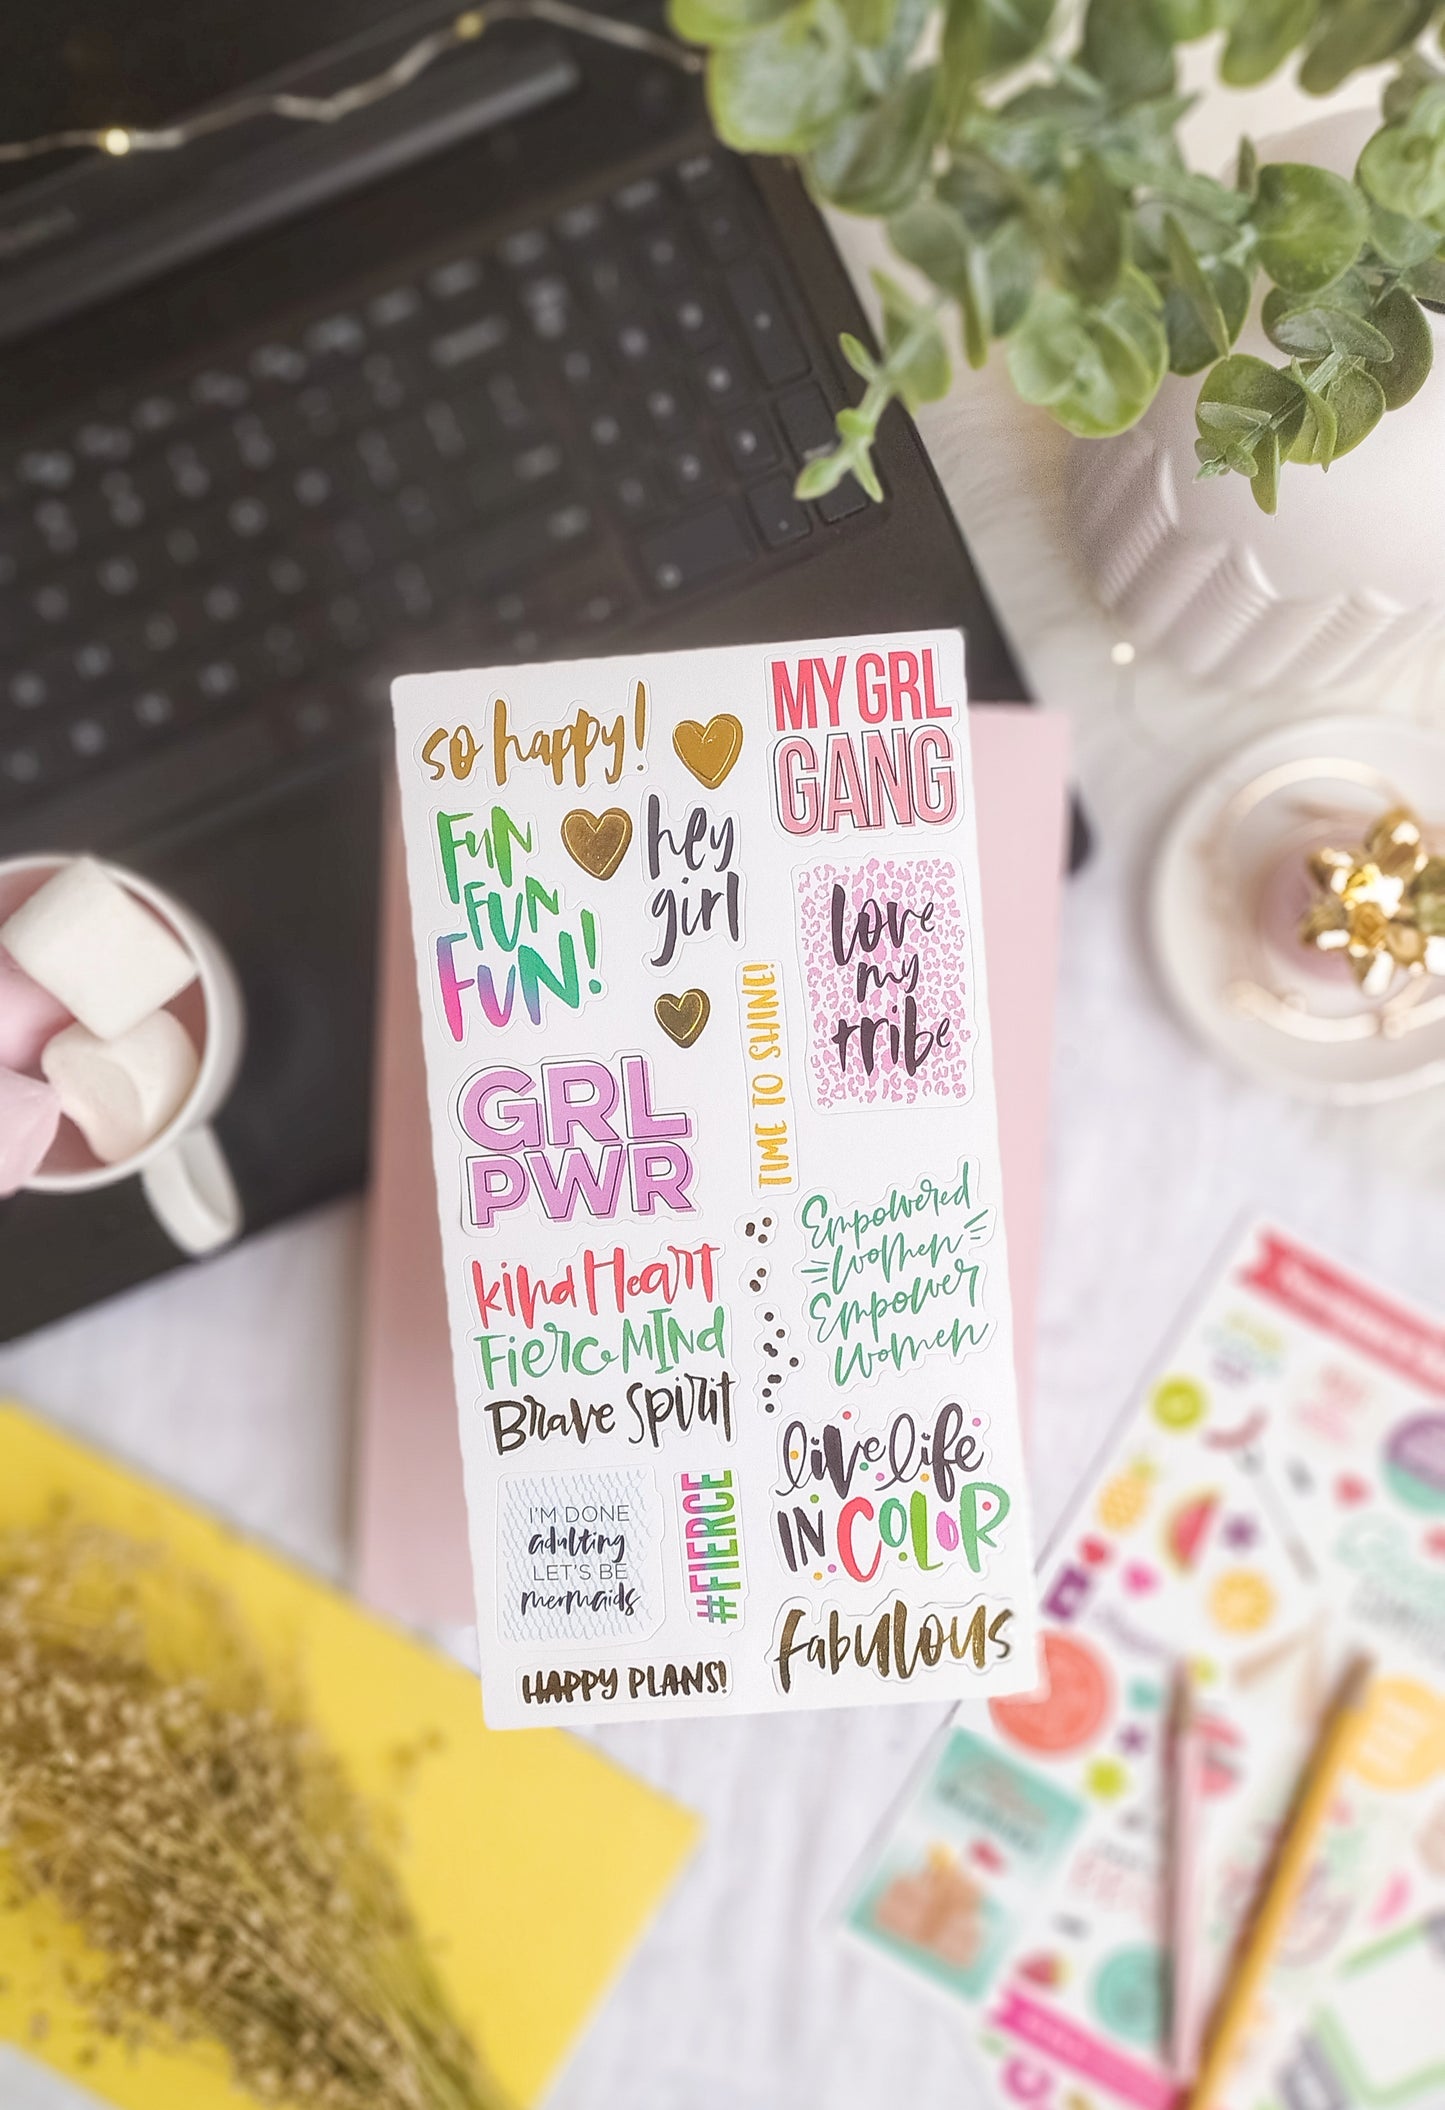 so happy!
MY GRL
GANG
FUN
FUN
FUN!
hey
girl
love
my
tribe
TIME TO SHINE!
GRL
PWR
Empowered
Women
Empower
Women
kind Heart
Fierce MINd
Brave spirit
live life
IN COLOR
I'M DONE
adulting
LET'S BE
mermaids
#FIERCE
fabulous
HAPPY PLANS!